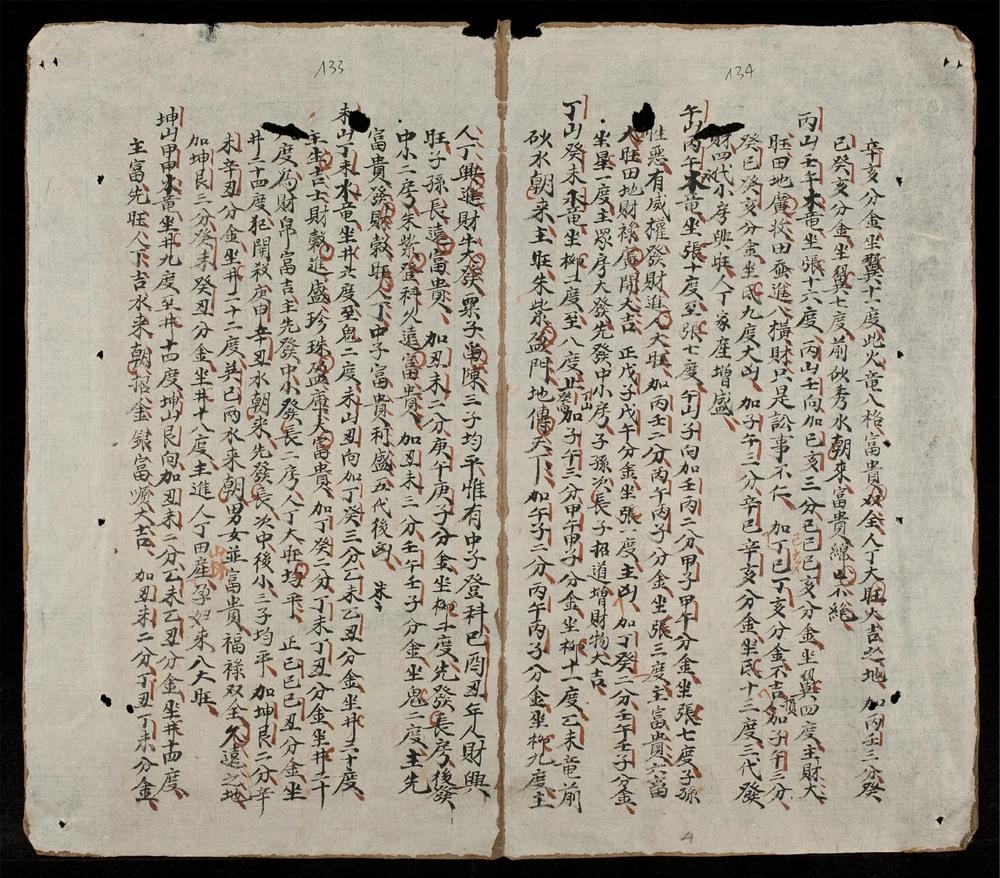 134
辛亥分金坐翼十一度此火竜入格富貴双全人丁大旺大吉之地加丙壬二分癸
巳癸亥分金坐翼七度前砂秀水朝來富貴綿不絕
丙山壬午木竜坐張十六度丙山壬向加巳亥三分己巳己亥分金坐翼四度主財大
旺田地廣牧田蚕進八橫財只是訟事不仁加丁巳丁亥分金不吉加子午三分
癸巳癸亥分金坐氐九度大凶加子午三分辛巳辛亥分金坐氐十三度三代發
財四代小房興旺人丁家產增盛
午山丙午水竜坐張十度至張七度午山子向加壬丙二分甲子甲午分金坐張七度子孫
性惡有威權發財進人大旺加丙壬二分丙午丙子分金坐張三度主富貴六畜
大旺田地財祿廣闊大吉正戊子戊午分金坐張一度主凶加丁癸二分壬午壬子分金
坐星一度主眾房大發先發中小房子孫次長子招道增財物大吉
丁山癸未木竜坐柳一度至八度丁山癸向加子午三分甲午甲子分金坐柳十一度乙未竜前
砂水朝來主旺朱紫盈門地傳天下加午子二分丙午丙子分金坐柳九度主
133
人丁興進財牛大發眾子當陳三子均平惟有中子登科巳酉丑年人財興
旺子孫長遠富貴加丑未二分庚午庚子分金坐柳十度先發長房後發
中小二房朱紫登科久遠富貴加丑未三分壬午壬子分金坐鬼二度主先
富貴發財穀旺人丁中子富貴利盛五代後凶
未山丁未水竜坐井廿度至鬼二度未山丑向加丁癸三分乙未乙丑分金坐井三十度
年生吉士財穀進盛珍珠盈庫大富貴加丁癸二分丁未丁丑分金坐井二十
八度為財帛富吉主先發中小發長二房人丁大旺均平正己巳己丑分金坐
井二十四度犯開殺庚申辛丑水朝來先發長次中後小三子均平加坤艮二分辛
未辛丑分金坐井二十二度巽巳丙水來朝男女並富貴福祿双全久遠之地
加坤艮三分癸未癸丑分金坐井十八度主進人丁田產孕婦來八大旺
坤山甲申水竜坐井九度至井十四度坤山艮向加丑未三分乙未乙丑分金坐井十四度
主富先旺人丁吉水來朝招金銀富貴大吉加丑未二分丁丑丁未分金